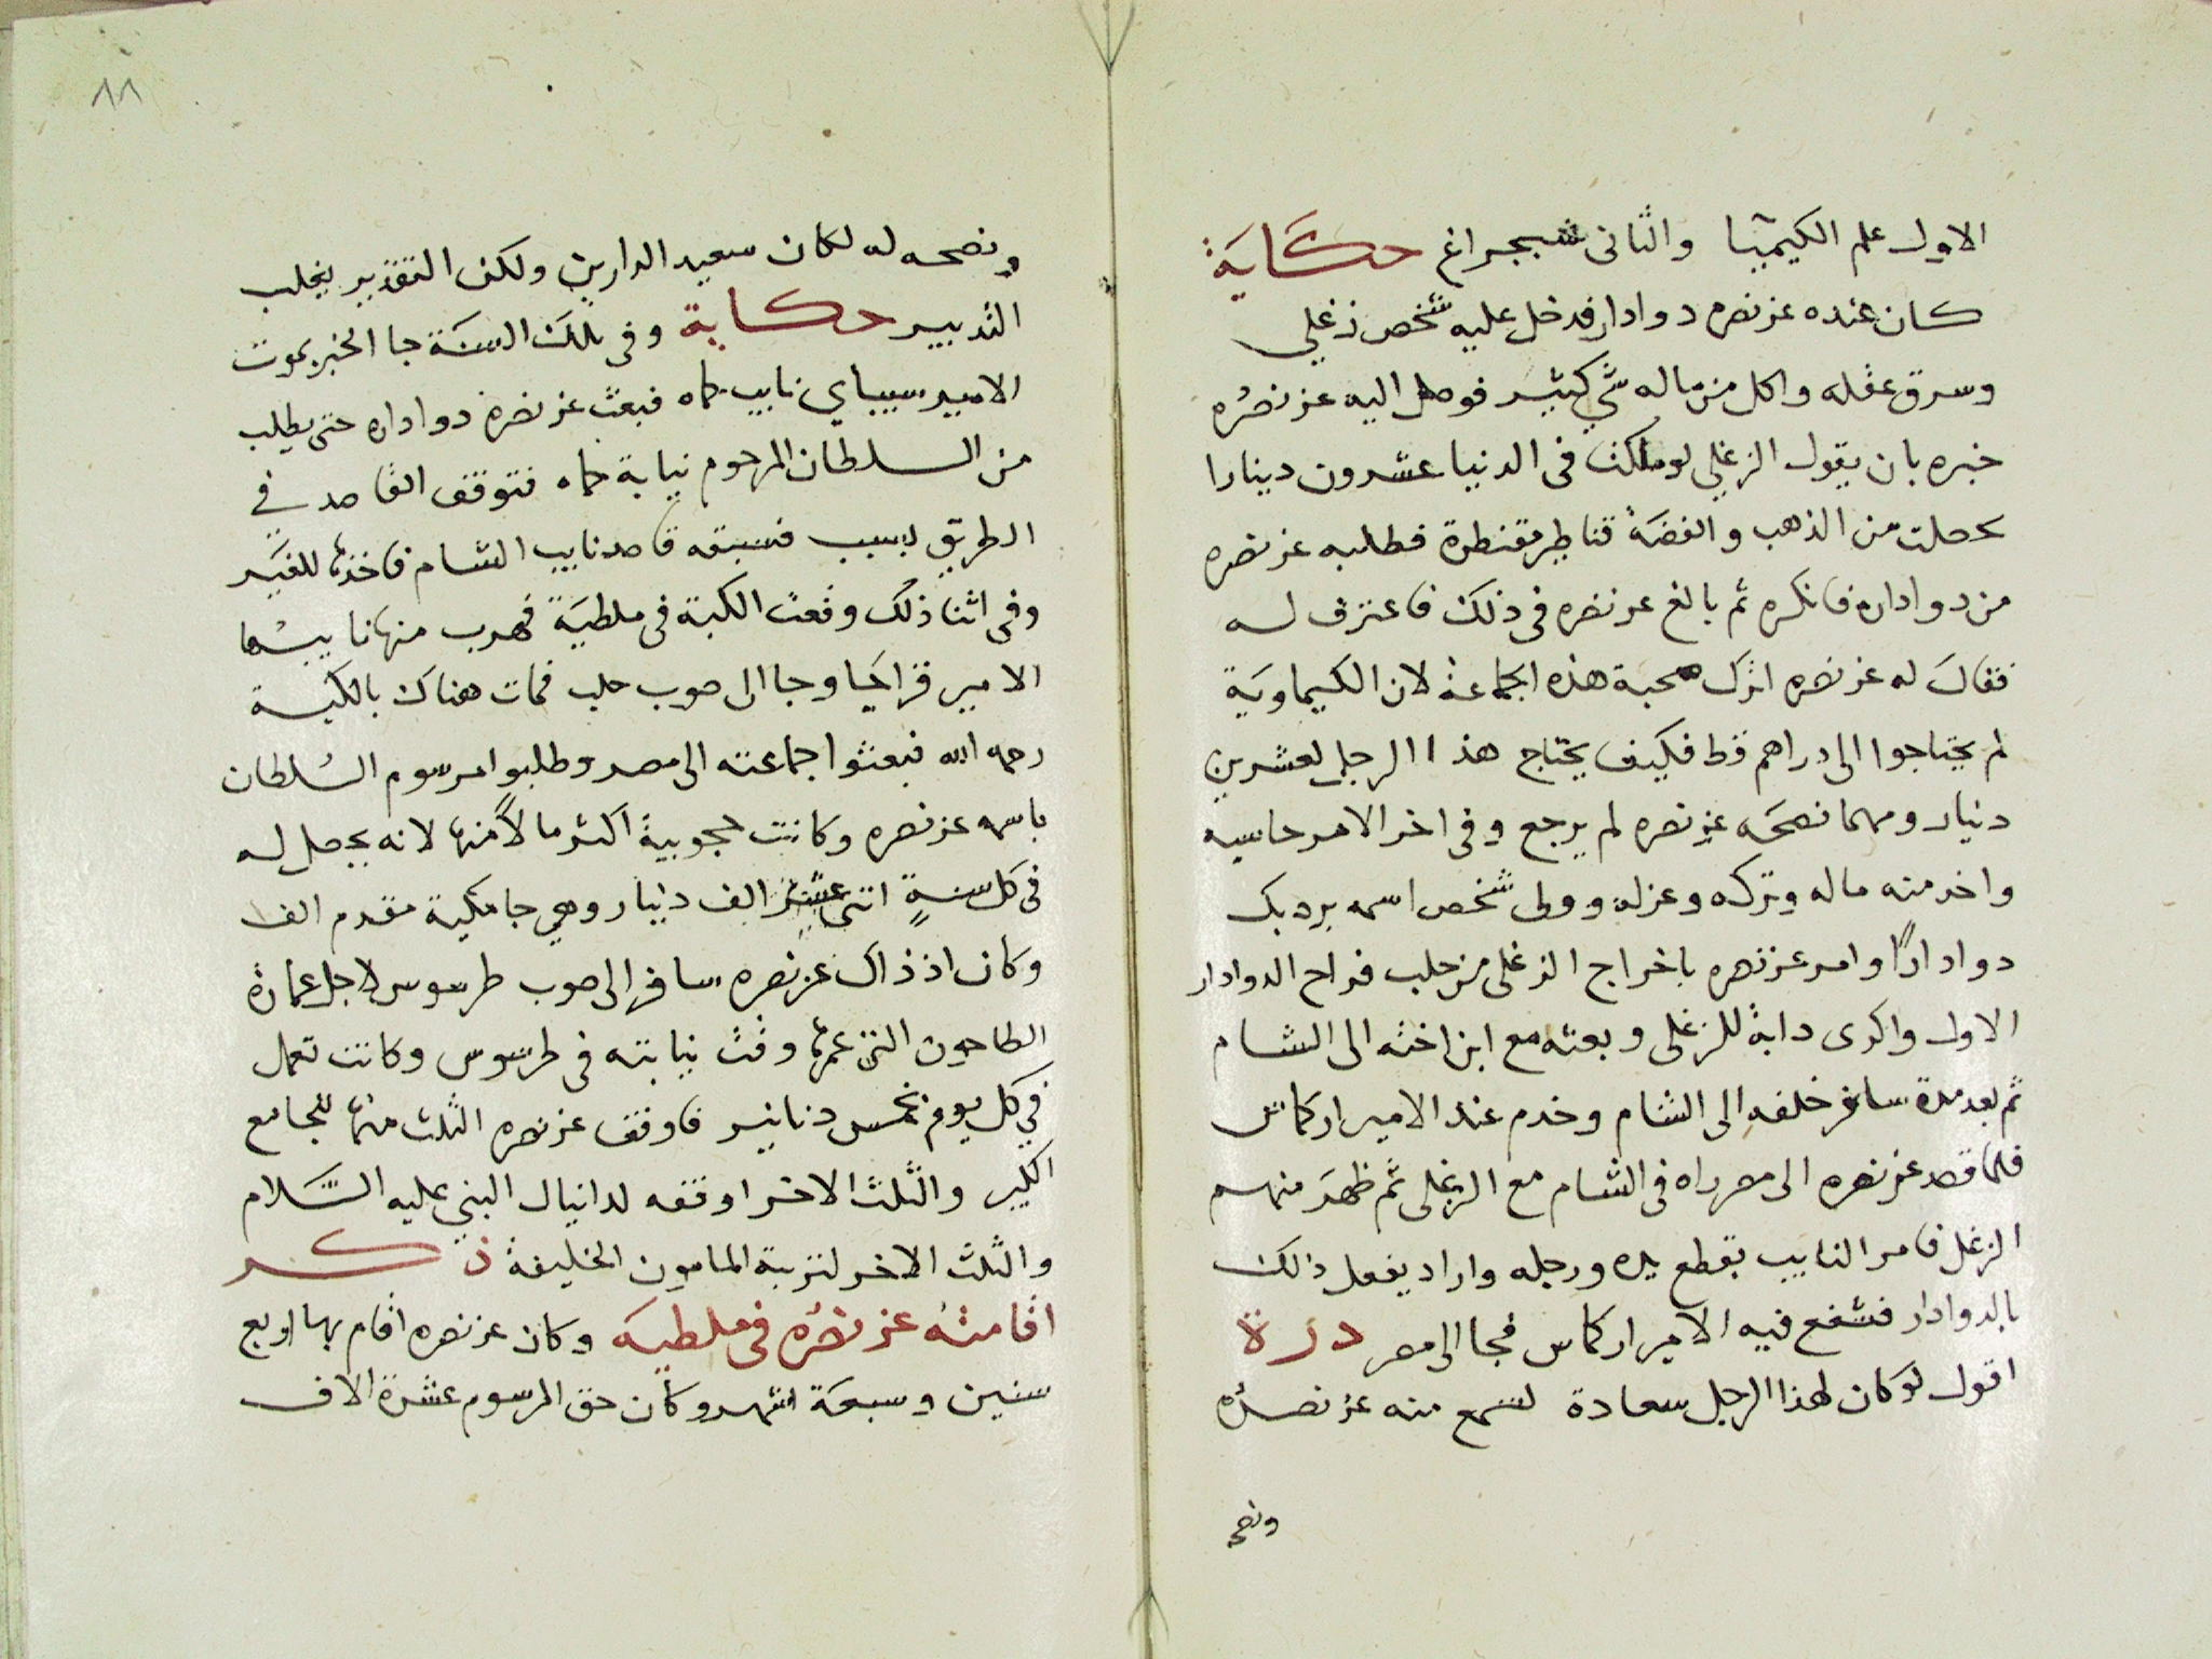 الاول علم الكيميا والثانى شبجراغ حكاية
كان عنده عز نصره دوادار فدخل عليه شخص زغلي
وسرق عقله واكل من ماله شي كثير فوصل اليه عز نصره
خبره بان يقول الزغلي لو ملكت فى الدنيا عشرون دينارا
حصلت من الذهب والفضة قناطير مقنطرة فطلبه عز نصره
من دواداره فانكره ثم بالغ عز نصره فى ذلك فاعترف له
فقال له عز نصره اترك صحبة هذه الجماعة لان الكيماوية
لم يحتاجوا الى دراهم قط فكيف يحتاج هذا الرجل لعشرين
دينار ومهما نصحه عز نصره لم يرجع وفى اخر الامر حاسبه
واخد منه ماله وتركه وعزله وولى شخص اسمه بردبك
دوادارًا وامر عز نصره باخراج الزغلى من حلب فراح الدوادار
الاول واكرى دابة للزغلى وبعثه مع ابن اخته الى الشام
ثم بعد مدة سافر خلفه الى الشام وخدم عند الامير اركماس
فلما قصد عز نصره الى مصر راه فى الشام مع الزغلى ثم ظهر منهم
الزغل فامر النايب بقطع يده ورجله واراد يفعل ذالك
بالدوادار فشفع فيه الامير اركماس فجا الى مصر درة
اقول لو كان لهذا الرجل سعادة لسمع منه عز نصره
ونصحه
٨٨
ونصحه له لكان سعيد الدارين ولكن التقدير يغلب
التدبير حكاية وفى تلك السنة جا الخبر بموت
الامير سيباي نايب حماه فبعث عز نصره دواداره حتى يطلب
من السلطان المرحوم نيابة حماه فتوقف القاصد في
الطريق لسبب فسبقه قاصد نايب الشام فاخذها للغير
وفى اثنا ذلك وقعت الكبة فى ملطية فهرب منها نايبها
الامير قراكجا وجا الى صوب حلب فمات هناك بالكبة
رحمه الله فبعثوا جماعته الى مصر وطلبوا مرسوم السلطان
باسمه عز نصره وكانت حجوبية اكثر مالًا منها لانه يحصل له
فى كل سنةٍ اثنى عشر الف دينار وهي جامكية مقدم الف
وكان اذ ذاك عز نصره سافر الى صوب طرسوس لاجل عمارة
الطاحون التى عمرها وقت نيابته فى طرسوس وكانت تعمل
في كل يوم بخمس دنانير فاوقف عز نصره الثلث منها للجامع
الكبير والثلث الاخر اوقفه لدانيال النبي عليه السلام
والثلث الاخر لتربة المامون الخليفة ذكر
اقامته عز نصره فى ملطيه وكان عز نصره اقام بها اربع
سنين وسبعة اشهر وكان حق المرسوم عشرة الاف